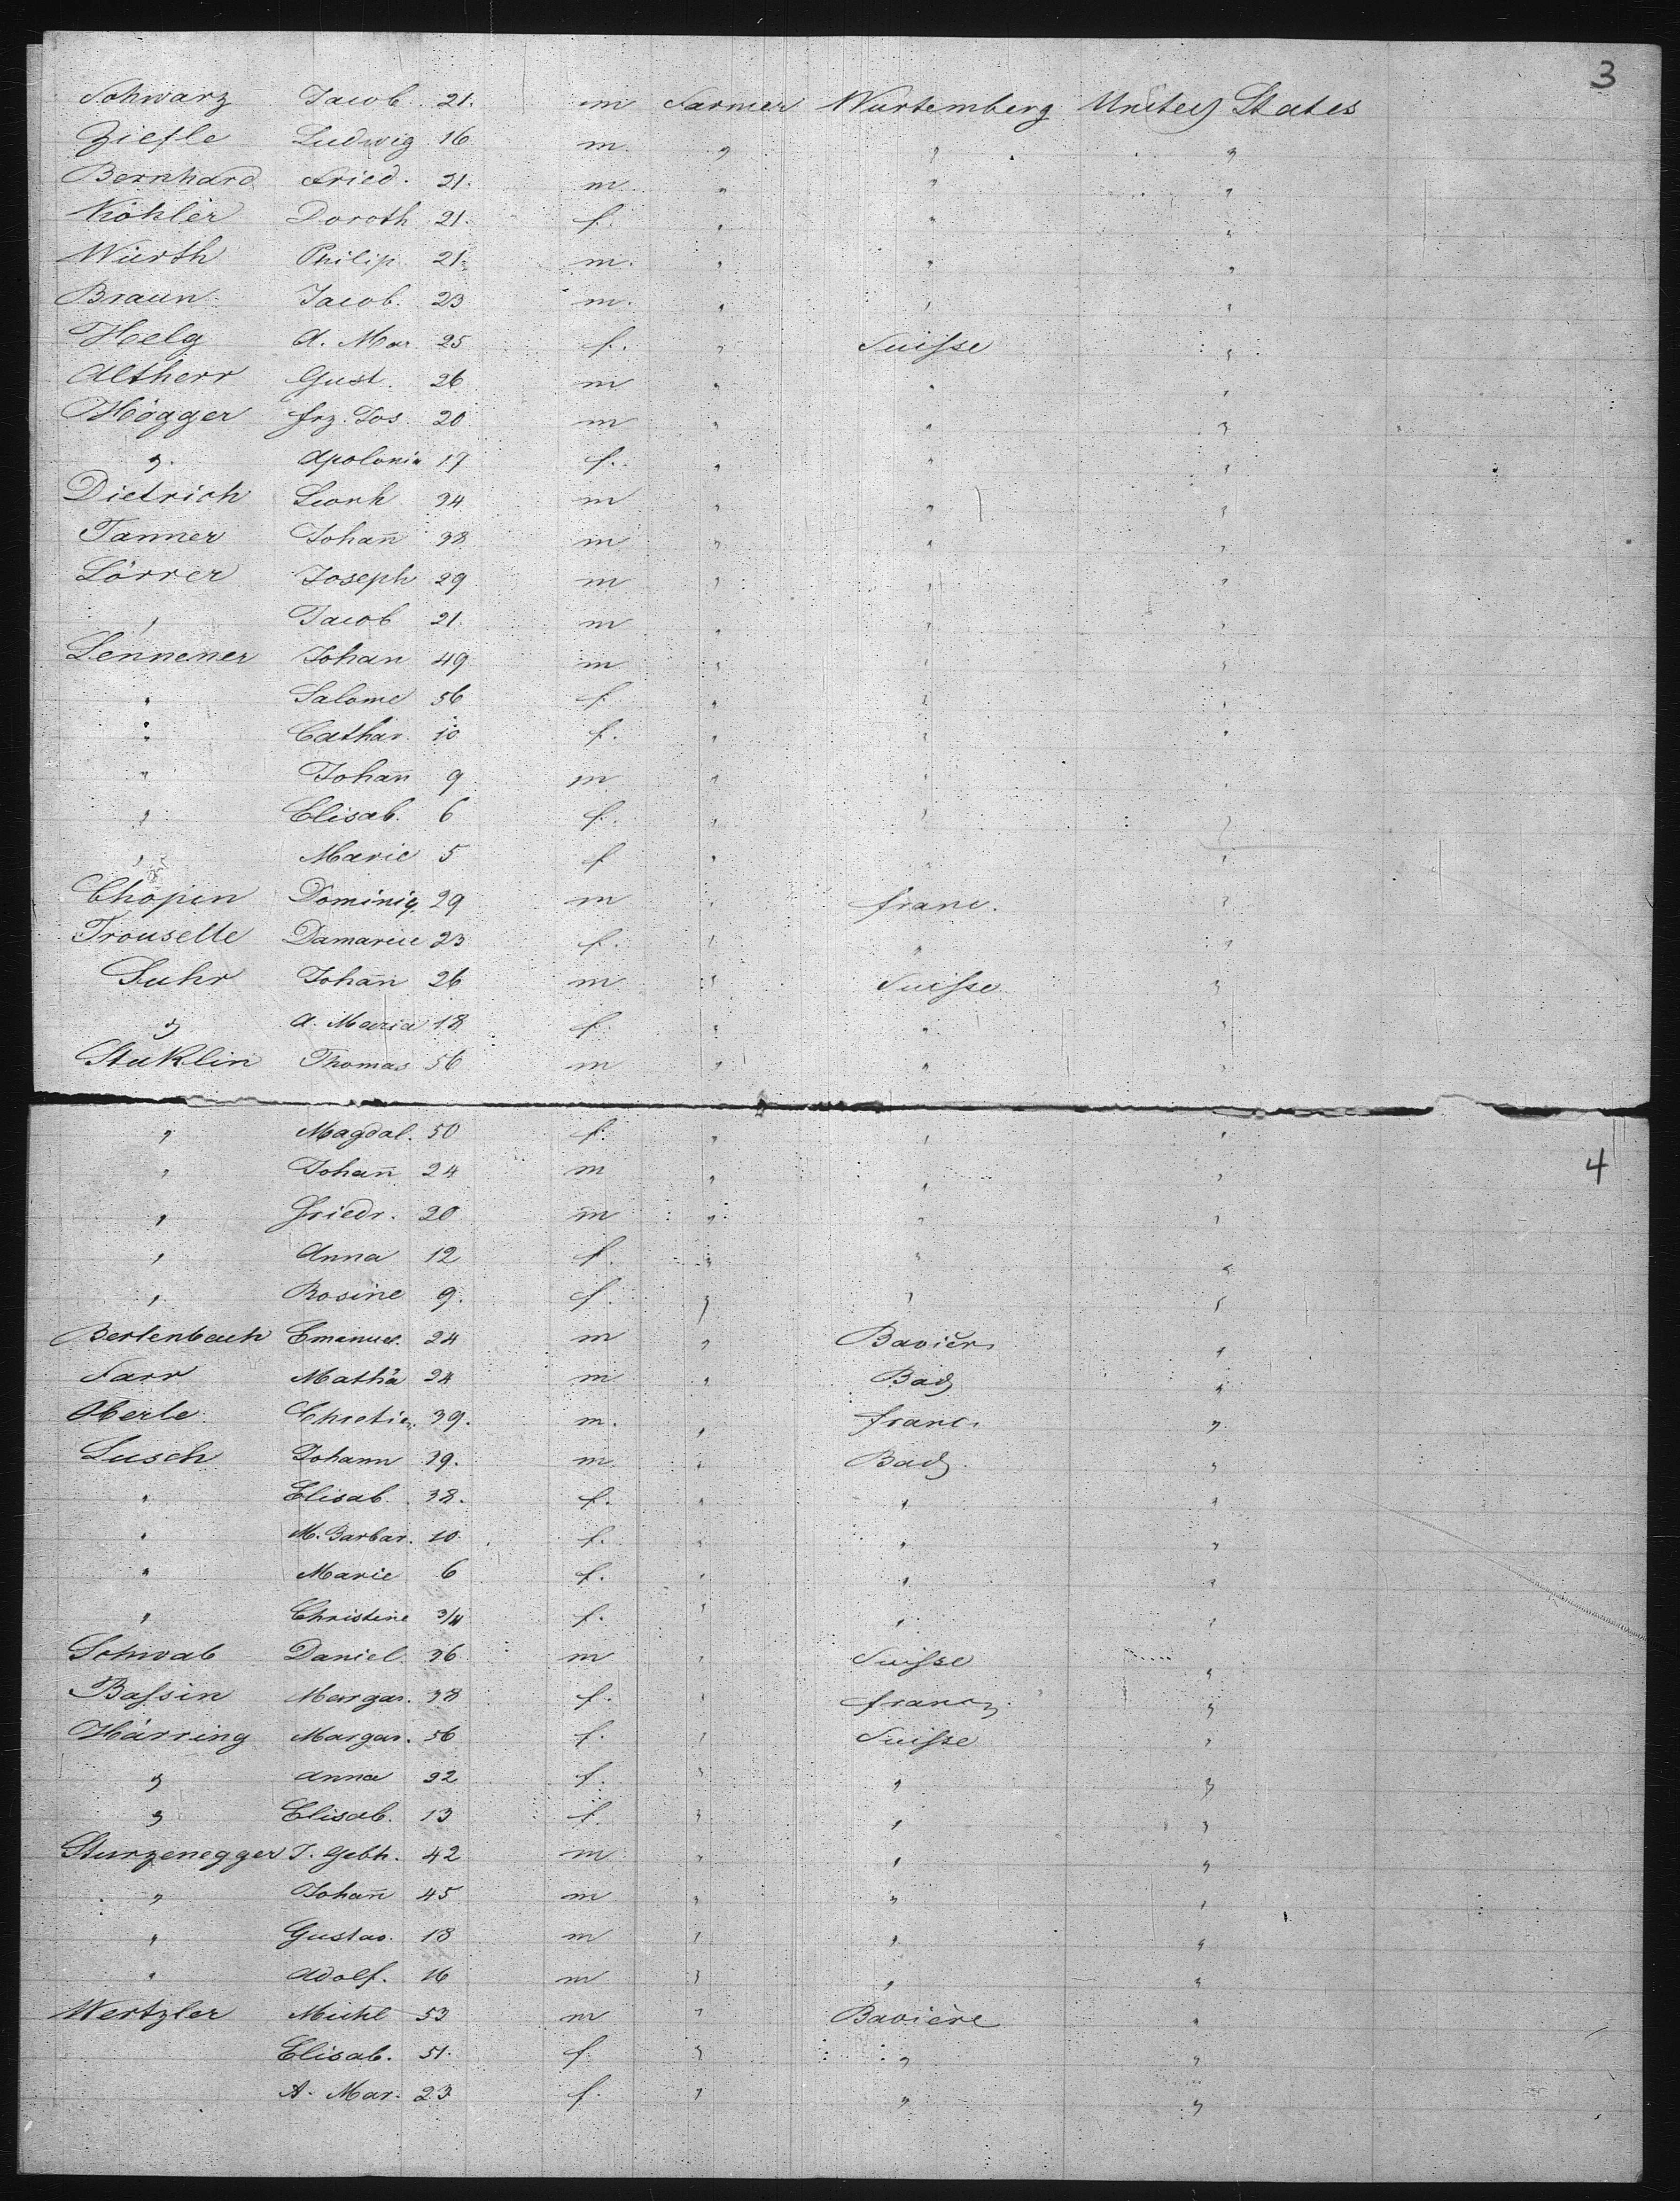 3
Schwarz Jacob 21. m Farmer Wurtemberg United States
Ziefle Ludwig 16 m. " " "
Bernhard Fried. 21. m " " "
Köhler Doroth 21. f. " " "
Würth Philip 21. m. " " "
Braun Jacob. 23 m. " " "
Helg A. Mar. 25 f. " Suisse "
Altherr Gust. 26 m " " "
Högger Frz. Jos. 20 m " " "
" Apolonia 17 f. " " "
Dietrich Leonh 34 m " " "
Tanner Johañ 38 m " " "
Lörrer Joseph 29 m " " "
" Jacob 21. m " " "
Lennener Johan 49 m " " "
" Salome 56 f " " "
" Cathar. 10 f. " " "
" Johañ 9 m " " "
" Elisab. 6 f. " " "
" Marie 5 f " " "
Chopin Dominiq. 29 m " franc. "
Trouselle 23 f. " " "
Suhr Johañ 26 m " Suisse "
" A. Maria 18 f. " " "
Stuklin Thomas 56 m " " "
" Magdal. 50 f. " " "
4
" Johañ 24 m " " "
" Friedr. 20 m " " "
" Anna 12 f. " " "
" Rosine 9. f. " " "
Berlenbach Emanuel. 24 m " Bavière "
Farr Mathä 24 m " Bad "
Oberle Chretien 39. m. " franc. "
Lusch Johann 39. m " Bad. "
" Elisab. 38. f. " " "
" M. Barbar. 10. f. " " "
" Marie 6 f. " " "
" Christine 3/4 f. " " "
Schwab Daniel 36 m " Suisse "
Bassin Margar. 38 f. " franc "
Härring Margar. 56 f. " Suisse "
" Anna 32 f. " " "
" Elisab. 13 f. " " "
Sturzenegger J. Gebh. 42 m " " "
" Johañ 45 m " " "
" Gustav. 18 m " " "
" Adolf. 16 m " " "
Wertzler Michl 53 m " Bavière "
Elisab. 51. f " " "
A. Mar. 23 f. " " "